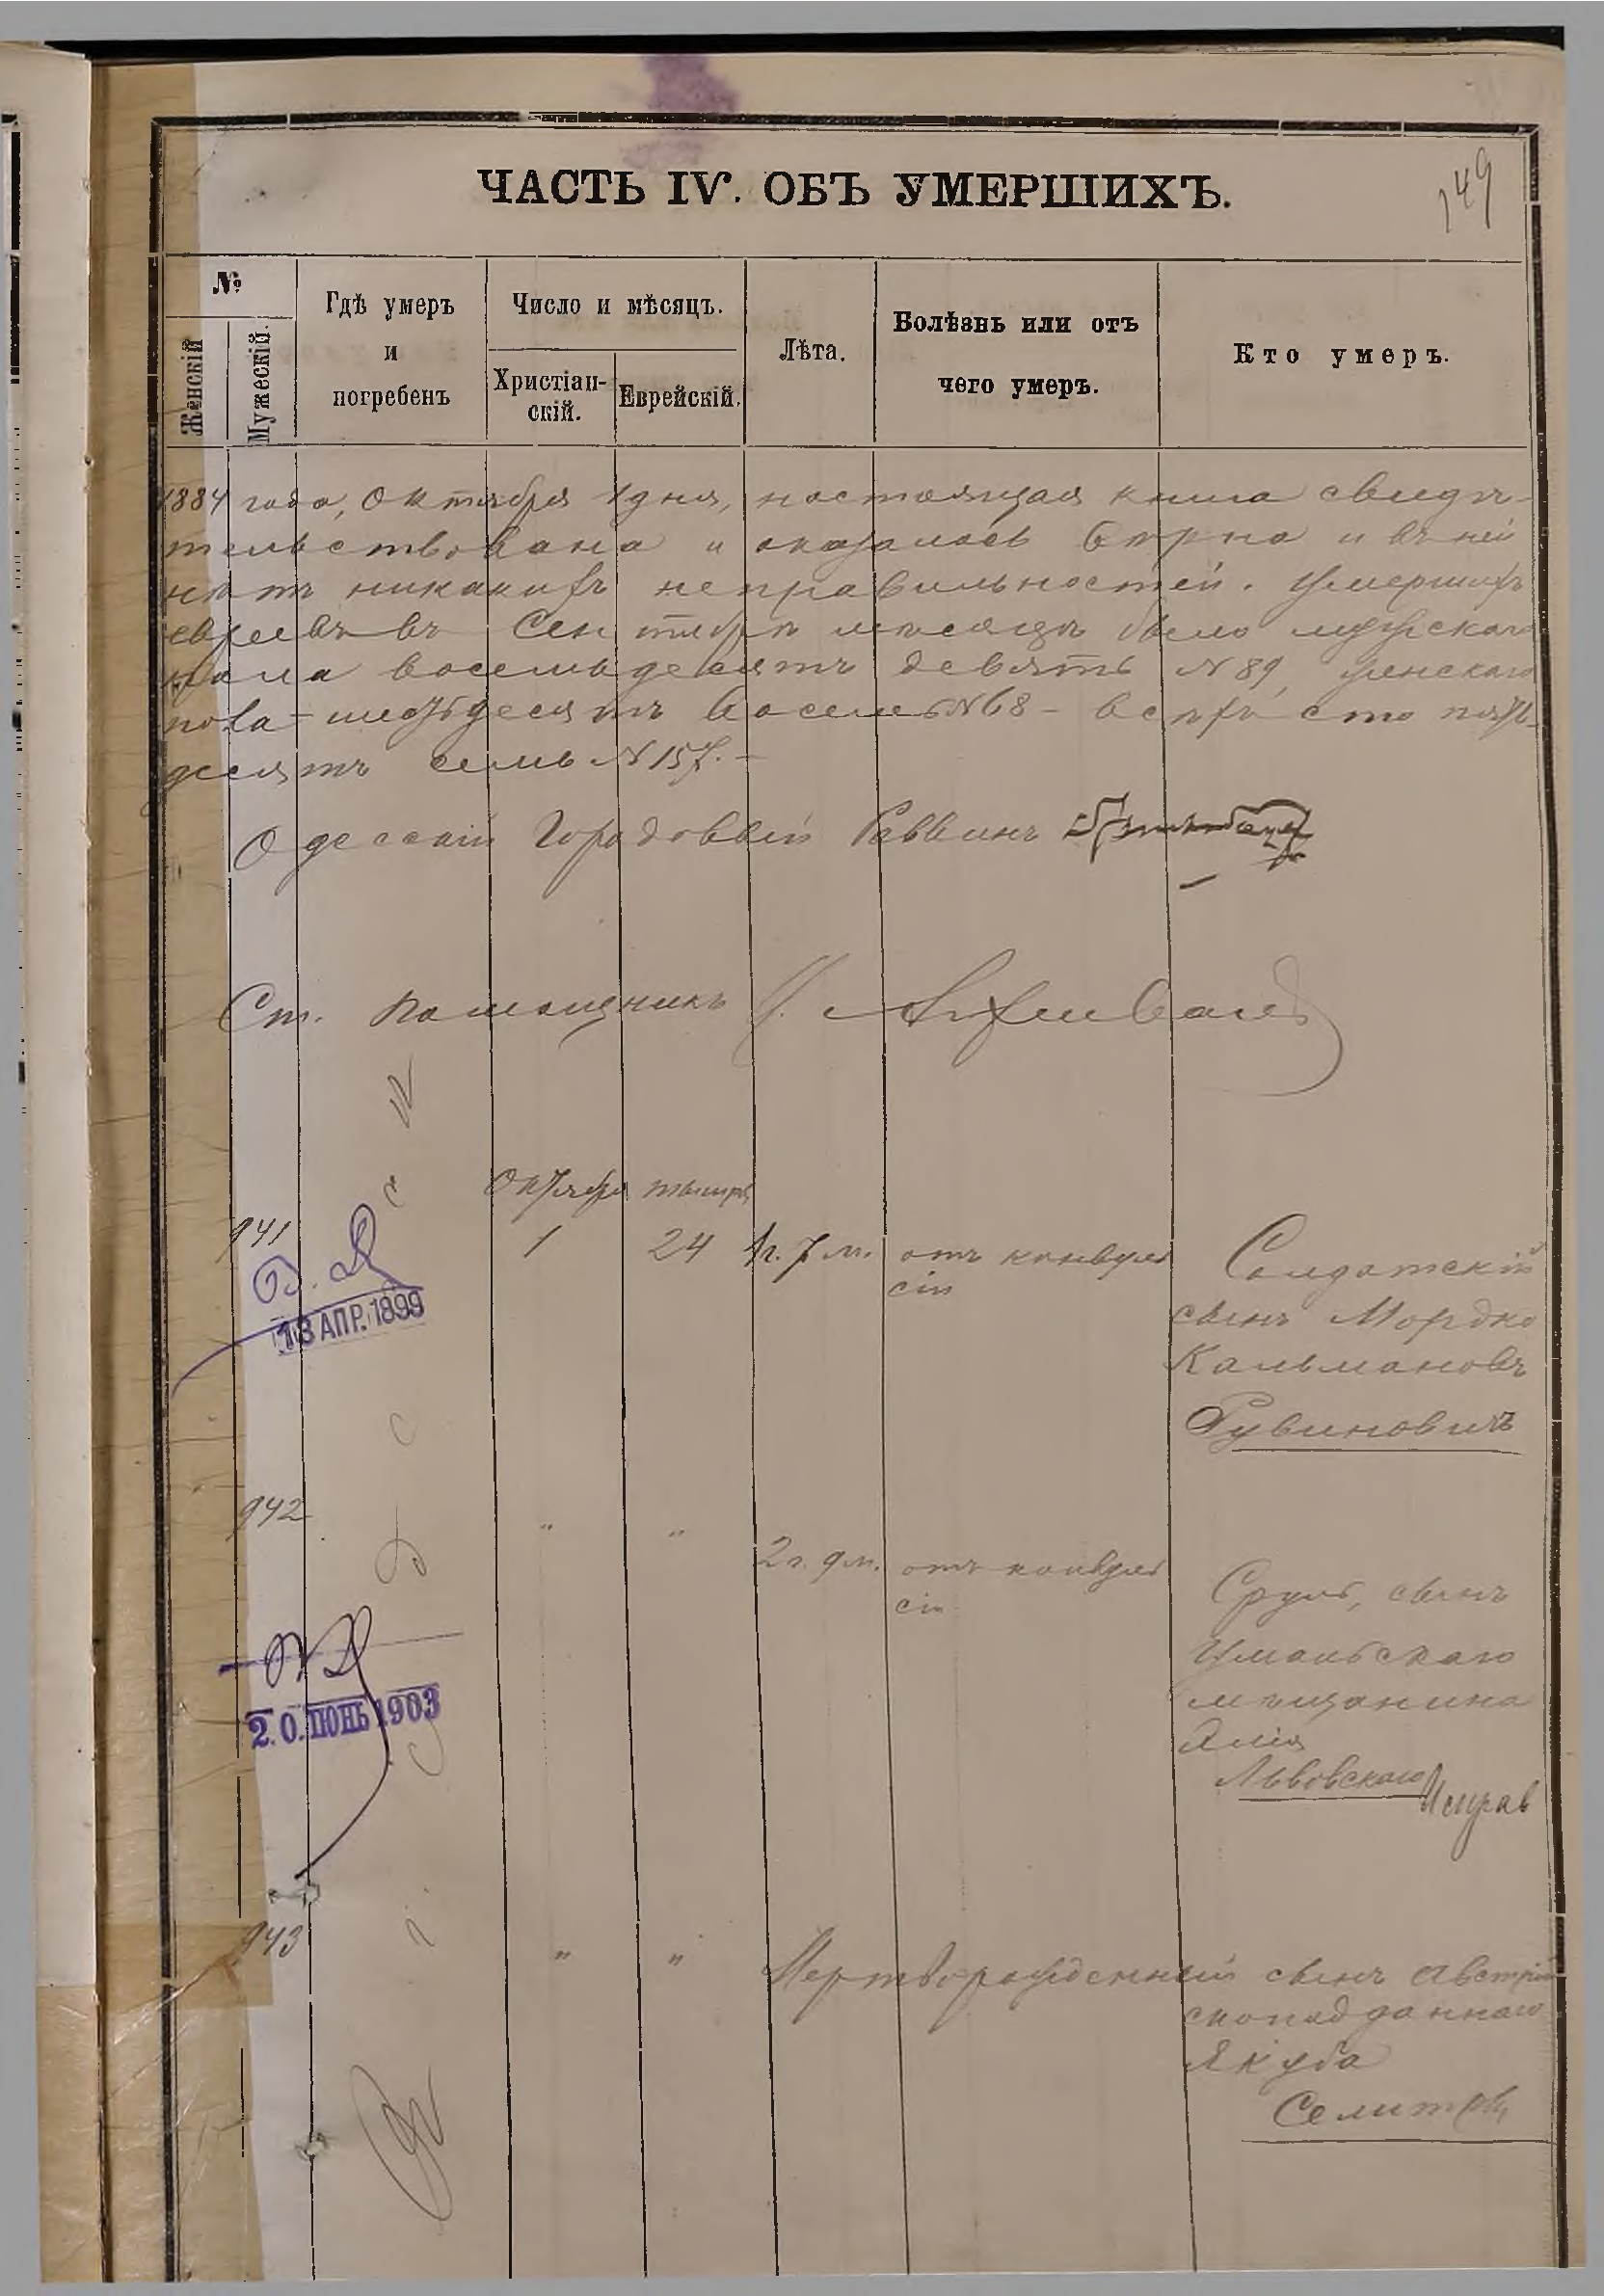 149
ЧАСТЬ IV. ОБЪ УМЕРШИХЪ.
№
Женскій
Мужескій.
Гдѣ умеръ
и
погребенъ
Число и мѣсяцъ.
Христіан-
скій.
Еврейскій.
Лѣта.
Болѣзнь или отъ
чего умеръ.
Кто умеръ.
1884 года, Октября 1 дня, настоящая книга свидѣ-
тельствована и оказалась вѣрна и въ ней
нѣтъ никакихъ неправильностей. Умершихъ
евреевъ въ Сентябрѣ мѣсяцѣ было мужскаго
пола восемьдесятъ девять N 89, женскаго
пола - шестьдесятъ восемь N 68 - всѣхъ сто пять-
десятъ семь N 157. -
Одесскій Городовой Раввинъ
Ст. Помощникъ
Октября тишри
941 1 24 1г. 7 м. отъ конвуль
сіи
Солдатскій
сынъ Мордко
Кальмановъ
Рувиновичъ
13 АПР. 1899
942 " " 2 г. 9 м. отъ конвуль
сіи
Сруль, сынъ
Уманьскаго
мѣщанина
Львовскаго
20. ІЮНЬ 1903
943 " " Мертворожденный сынъ Австрій
скоподданнаго
Якуба
Одессѣ